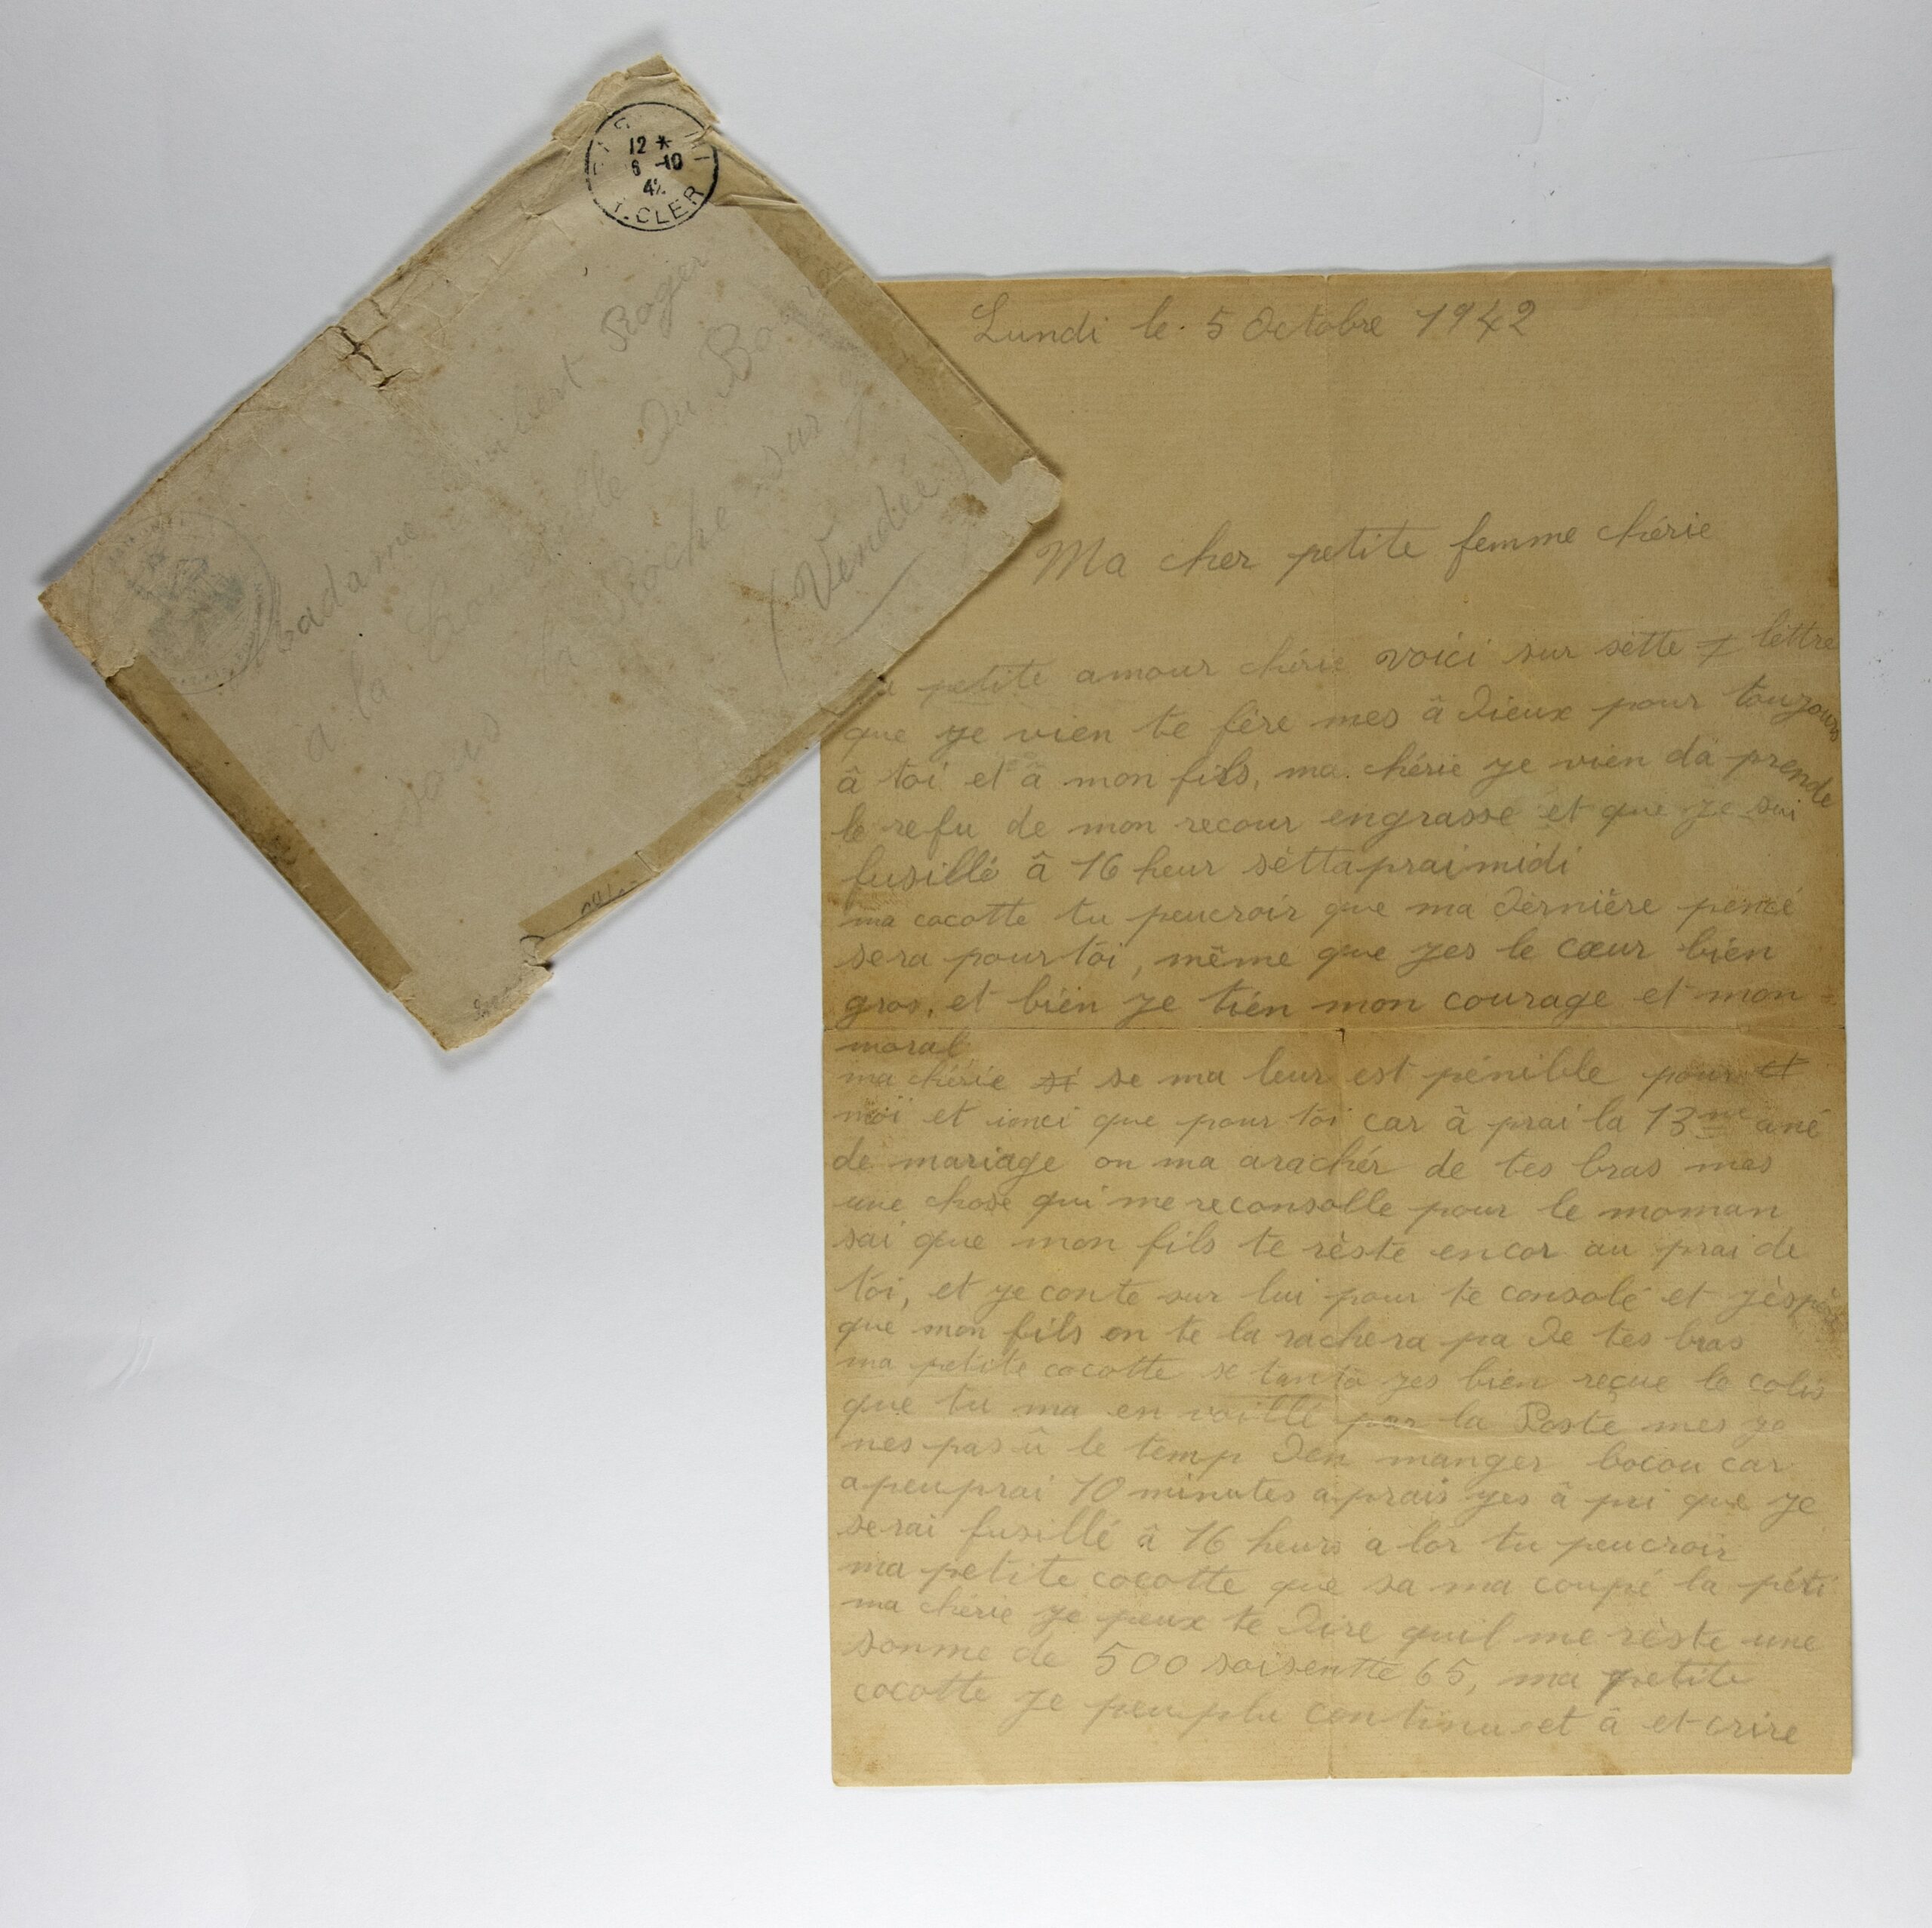 12 *
6 -10
42
T. CLER
Madame Roger
à la Du
sous la Roche sur
(Vendée)
Lundi le 5 Octobre 1942
Ma cher petite femme chérie
petite amour chérie voici sur sètte lettre
que ye vien te fère mes â dieux pour toujours
â toi et â mon fils, ma chérie ye vien da prende
le refu de mon recour engrasse et que ye sui
fusillé â 16 heur sèttapraimidi
ma cocotte tu peucroir que ma dernière pensé
sera pour toi, même que yes le cœur bien
gros, et bien ye tién mon courage et mon
moral
ma chérie si se ma leur est pénible pour et
moi et imci que pour toi car â prai la 13me ané
de mariage on ma arachér de tes bras mas
une chose qui me reconsolle pour le moman
sai que mon fils te rèste encor au prai de
toi, et ye conte sur lui pour te consolé et yèspère
que mon fils on te la rachera pa de tes bras
ma petite cocotte se tantö yes bien reçue le colis
que tu ma en voillé par la Poste mes ye
nes pas û le temp den manger bocou car
apeuprai 10 minutes aprais yes â pri que ye
serai fusillé â 16 heurs a lor tu peucroir
ma petite cocotte que sa ma coupé la péti
ma chérie ye peux te dire quil me rèste une
sonme de 500 soisentte 65, ma petite
cocotte ye peu plu continuet â et crire